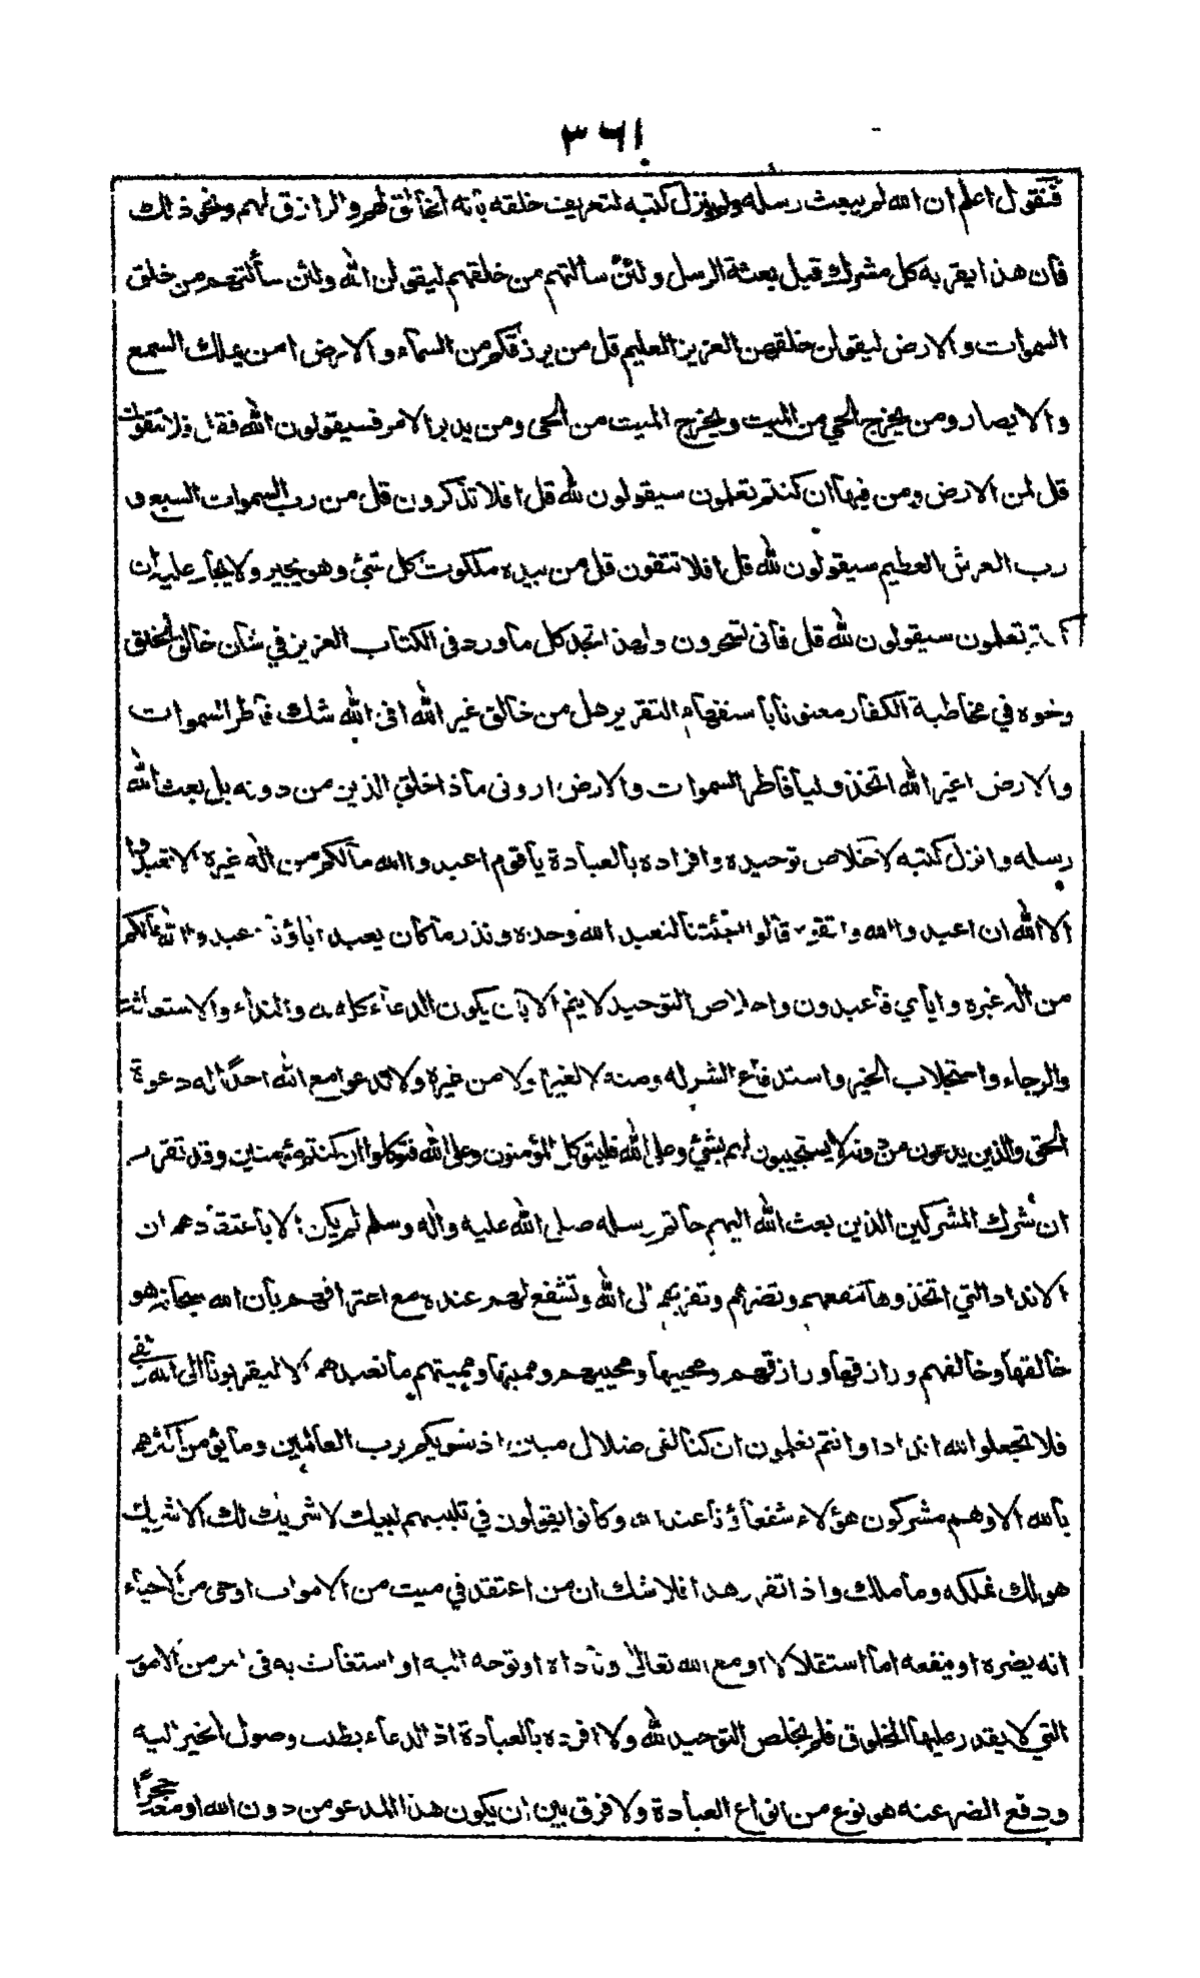 ٣٦١
فنقول اعلم ان الله لم يبعث رسله ولم ينزل كتبه لتعريف خلقه بأنه الخالق لهم والرازق لهم ونحو ذلك
فأن هذا يقر به كل مشرك قبل بعثة الرسل ولئن سألتهم من خلقهم ليقولن الله ولئن سألتهم من خلق
السموات والارض ليقولن خلقهن العزيز العليم قل من يرزقكم من السمآء والارض امن يملك السمع
والابصار ومن يخرج الحي من الميت ويخرج الميت من الحي ومن يدبر الامر فسيقولون الله فقل افلا تتقون
قل لمن الارض ومن فيهآ ان كنتم تعلمون سيقولون لله قل افلا تذكرون قل من رب السموات السبع و
رب العرش العظيم سيقولون لله قل افلا تتقون قل من بيده ملكوت كل شئ وهو يجير ولا يجار عليه ان
كنتم تعلمون سيقولون لله قل فأنى تسحرون ولهذا تجد كل مأ ورد في الكتأب العزيز في شأن خألق الخلق
ونحوه في مخاطبة الكفأر معنونأ بأستفهأم التقرير هل من خألق غير الله افي الله شك فأطر السموات
والارض اغير الله اتخذ وليأ فأطر السموات والارض اروني مأذا خلق الذين من دونه بل بعث الله
رسله وانزل كتبه لاخلاص توحيده وافراده بألعبادة يأقوم اعبدوا الله مألكم من اله غيره الا تعبدوا
الا الله ان اعبدوا الله واتقوه قألوا اجئتنأ لنعبد الله وحده ونذر مأ كأن يعبد اباؤنا اعبدوا الله مألكم
من اله غيره وايأي فأعبدون واخلاص التوحيد لا يتم الا بأن يكون الدعأء كله لله والندأء والاستغأثة
والرجاء واستجلاب الخير واستدفأع الشر له ومنه لا لغيره ولا من غيره ولا تدعوا مع الله احدًا له دعوة
الحق والذين يدعون من دونه لا يستجيبون لهم بشئ وعلى الله فليتوكل المؤمنون وعلى الله فتوكلوا ان كنتم مؤمنين وقد تقرر
ان شرك المشركين الذين بعث الله اليهم خأتم رسله صلى الله عليه وأله وسلم لم يكن الا بأعتقأدهم ان
الانداد التي اتخذوهأ تنفعهم وتضرهم وتقربهم الى الله وتشفع لهم عنده مع اعترافهم بأن الله سبحأنه هو
خألقهأ وخألقهم ورازقهأ ورازقهم ومحييهأ ومحييهم ومميتهأ ومميتهم مأ نعبدهم الا ليقربونأ الى الله زلفى
فلا تجعلوا لله اندادا وانتم تعلمون ان كنأ لفي ضلال مبين اذ نسويكم برب العألمين ومأ يؤمن أكثرهم
بألله الا وهم مشركون هؤلاء شفعأؤنأ عند الله وكأنوا يقولون في تلبيتهم لبيك لا شريك لك الا شريك
هو لك تملكه ومأ ملك واذا تقرر هذا فلا شك ان من اعتقد في ميت من الاموات او حي من الاحيأء
انه يضره او ينفعه امأ استقلالا او مع الله تعألى ونأداه او توجه اليه او استغأث به في امر من الامور
التي لا يقدر عليهأ المخلوق فلم يخلص التوحيد لله ولا افرده بألعبأدة اذ الدعأء بطلب وصول الخير اليه
ودفع الضر عنه هو نوع من انواع العبادة ولا فرق بين ان يكون هذا المدعو من دون الله او معه حجرًا